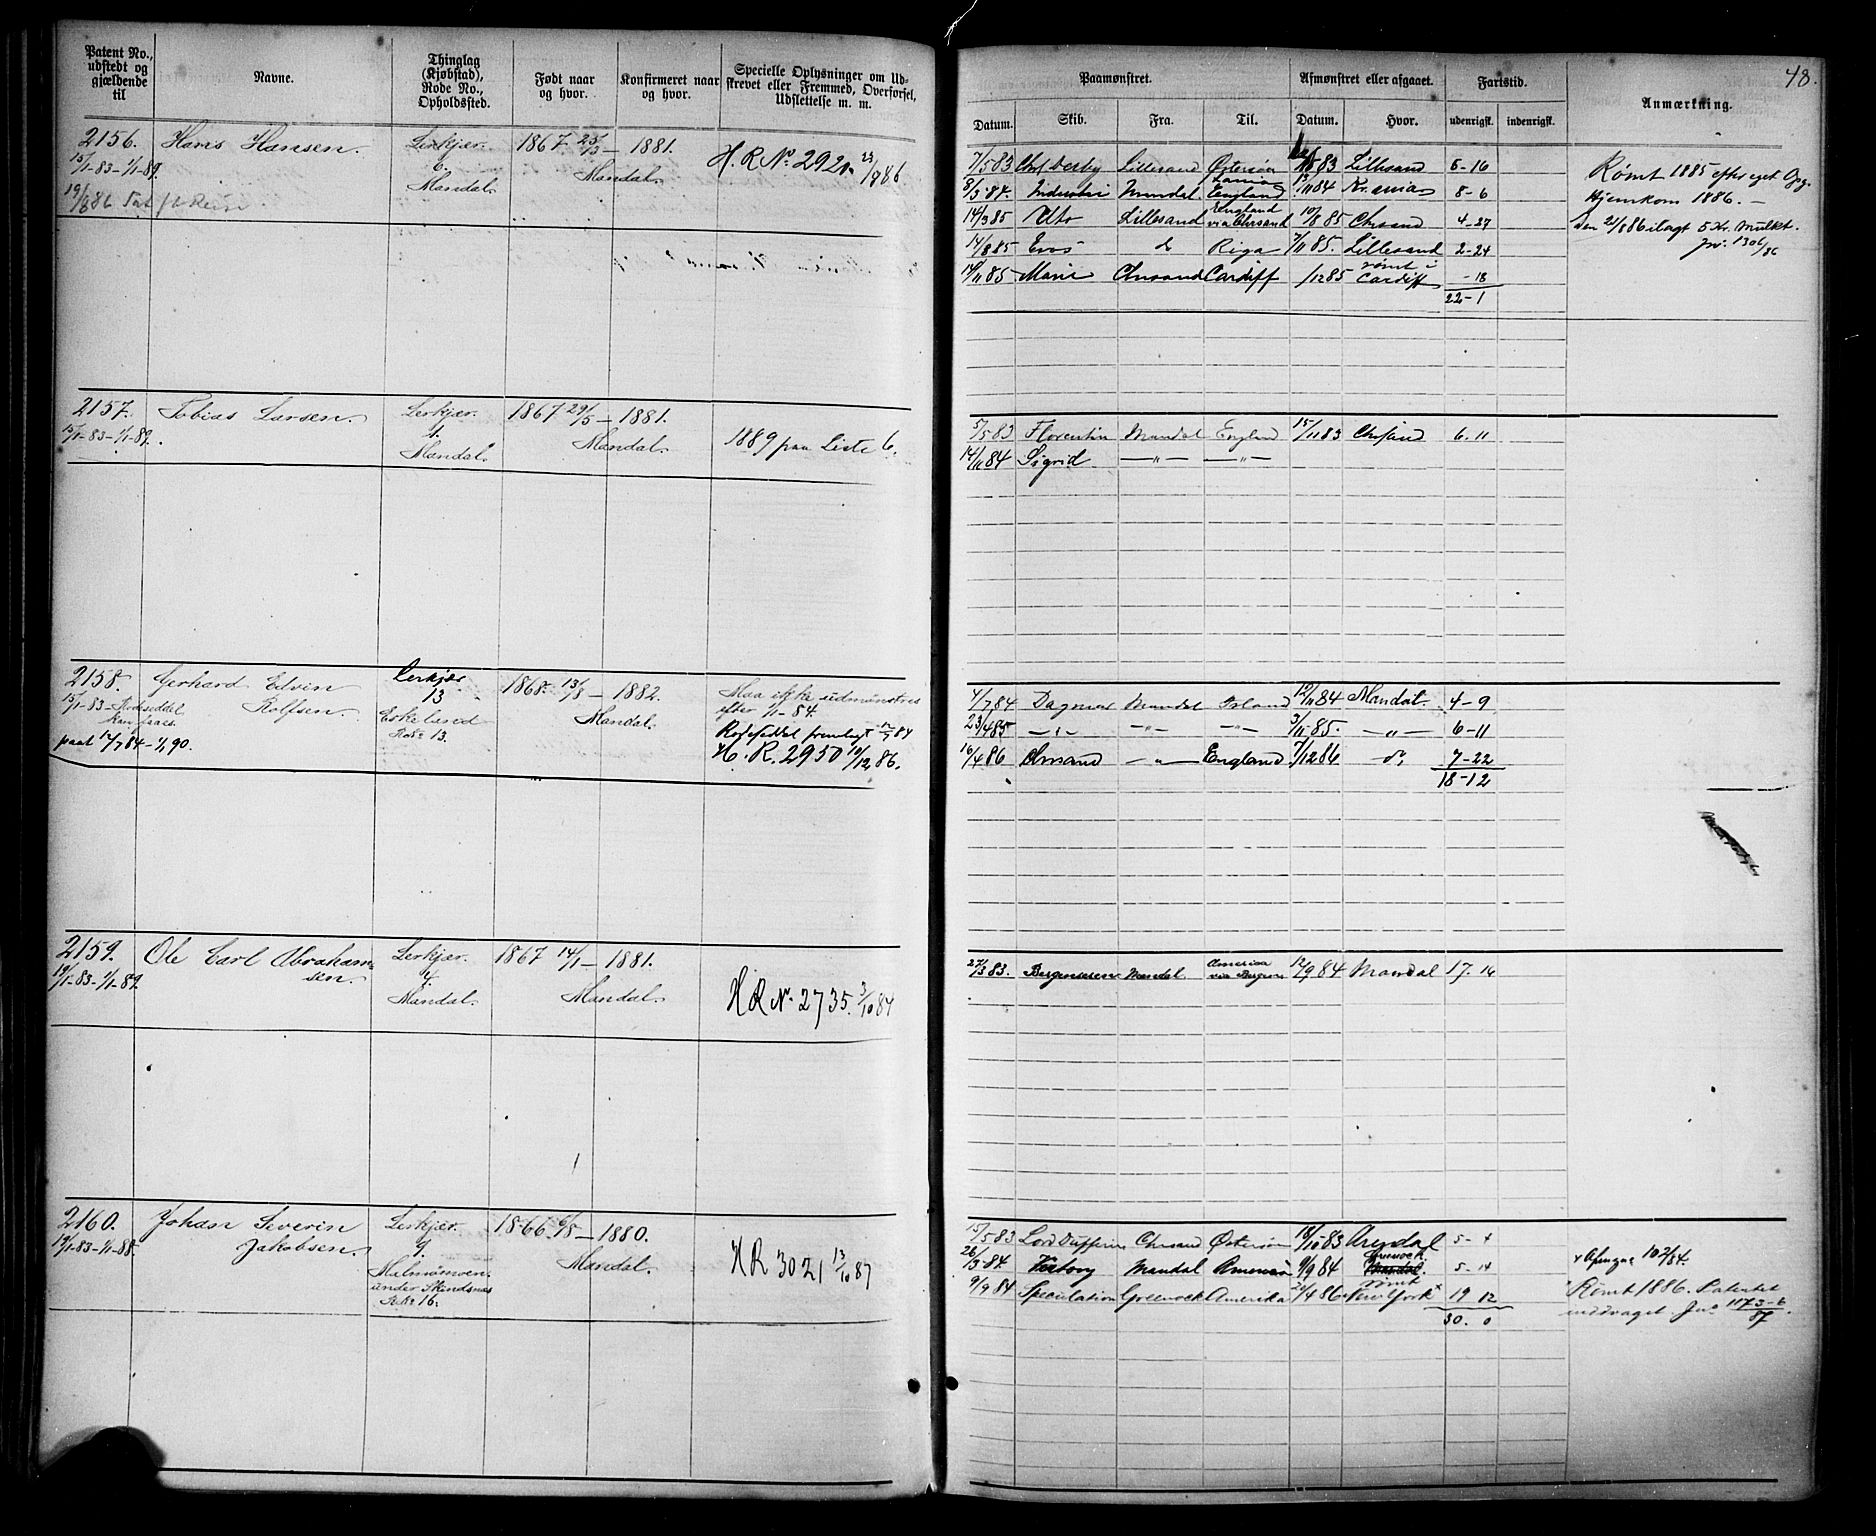 48.
Patent No., udstedt og gjældende til
Navne.
Thinglag (Kjøbstad), Rode No., Opholdssted.
Født naar og hvor.
Konfirmeret naar og hvor.
Specielle Oplysninger om Udskrevet eller Fremmed, Overførsel, Udslettelse m. m.
Paamønstret.
Afmønstret eller afgaaet.
Fartstid.
Anmærkning.
Datum. Skib. Fra. Til. Datum. Hvor. udenrigsk. indenrigsk.
2156. Hans Hansen. Lerkjær. 1867 25/3 — 1881. H. R No. 2920 23/8 86
15/1-83-1/1-89. 6. Mandal.
19/8 86 Mandal.
7/5 83 Chs Derby Lillesand Østersøen 83 Lillesand 6-16
8/3 84. Mandal England 11 84 Kr.ania 8-6
14/3 85 Uto Lillesand England via Chrsand 10/8 85 Chrsand 4-27
14/8 85 Eros do Riga 7/11 85. Lillesand 2-24
14/11 85 Marie Chrsand Cardiff /12 85 rømt i Cardiff -18
22-1
Rømt 1885 efter eget Opg.
Hjemkom 1886. —
den 23/8 86 ilagt 5 Kr. Mulkt.
Jno. 1306/86
2157. Tobias Larsen. Lerkjær. 1867 29/5 — 1881.
15/1-83-1/1-89. 4. Mandal. 1889 paa Liste 6.
Mandal.
5/5 83 Florentin Mandal England 15/11 83 Chrsand 6.11
14/11 84 Sigrid — " — — " —
2158. Gerhard Edvin Lerkjær 1868. 13/8 — 1882. Maa ikke udmønstres
15/1-83 Rodeseddel Rolfsen. 13 Mandal. efter 1/1-84.
Eskeland Rodeseddel fremlagt 12/7 84
paat 12/7 84-1/1 90. Rode 13. H. R. 2950 10/12 86.
4/7 84 Dagmar Mandal Island 12/11 84 Mandal. 4-9
23/4 85 — " — — " — — " — 3/11 85. — " — 6-11
16/4 86 Chrsand — " — England 7/12 86 — do 7-22
18-12
2159. Ole Carl Abraham= Lerkjær. 1867 14/1 — 1881.
19/1-83-1/1-89. sen. 4. Mandal. H R No. 2735. 3/10 84
Mandal.
27/3 83. Bergenseren Mandal America via Bergen 12/9 84 Mandal 17.16
2160. Johan Severin Lerkjær. 1866 6/8 — 1880.
19/1-83-1/1-88. Jakobsen. 9. Mandal. H R 3021 13/10 87
Malmømoen
under Skindsnæs
Rode 16.
15/5 83 Lord Dufferin Chrsand Østersøen 18/10 83 Arendal 5-4
26/3 84. Mandal 9/9 84 Greenock 5-14
9/9 84 Speculation Greenock Amerika 86 rømt New York x 19 12
30. 0
x 102/84.
Rømt 1886. Patentet
inddraget Jno. 1173-6/87.